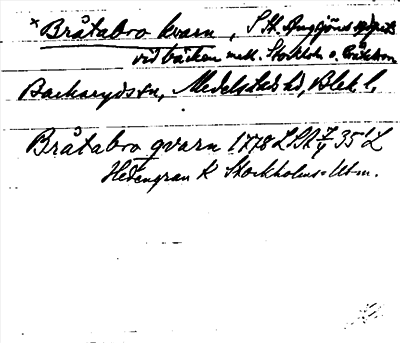 * Bråtabro kvarn, S.
vid bäcken mell. Stockholm o.
Backaryds sn, Medelstads hd, Blek. l.
Bråtabro qvarn 1778 LSA 35' L
Hedengran K Stockholms= Utm.